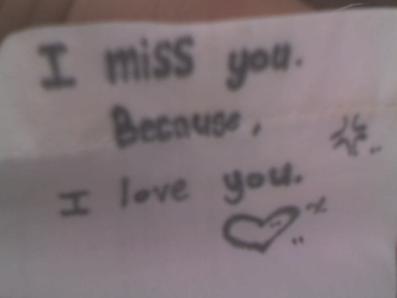 I miss you.
Because,
I love you.